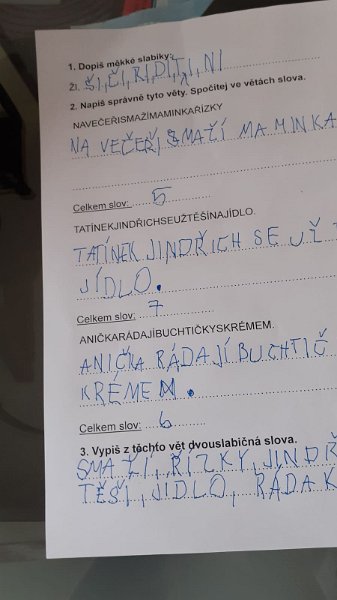 1. Dopiš měkké slabiky:
ŽI, ŠI, ČI, ŘI, DI, TI, NI
2. Napiš správně tyto věty. Spočítej ve větách slova.
NAVEČEŘISMAŽÍMAMINKAŘÍZKY
NA VEČEŘI SMAŽÍ MAMINKA
Celkem slov: 5
TATÍNEKJINDŘICHSEUŽTĚŠÍNAJÍDLO.
TATÍNEK JINDŘICH SE UŽ
JÍDLO.
Celkem slov: 7
ANIČKARÁDAJÍBUCHTIČKYSKRÉMEM.
ANIČKA RÁDA JÍ BUCHTIČ
KRÉMEM.
Celkem slov: 6
3. Vypiš z těchto vět dvouslabičná slova.
SMAŽÍ, ŘÍZKY, JINDŘ
TĚŠÍ, JIDLO, RÁDA K